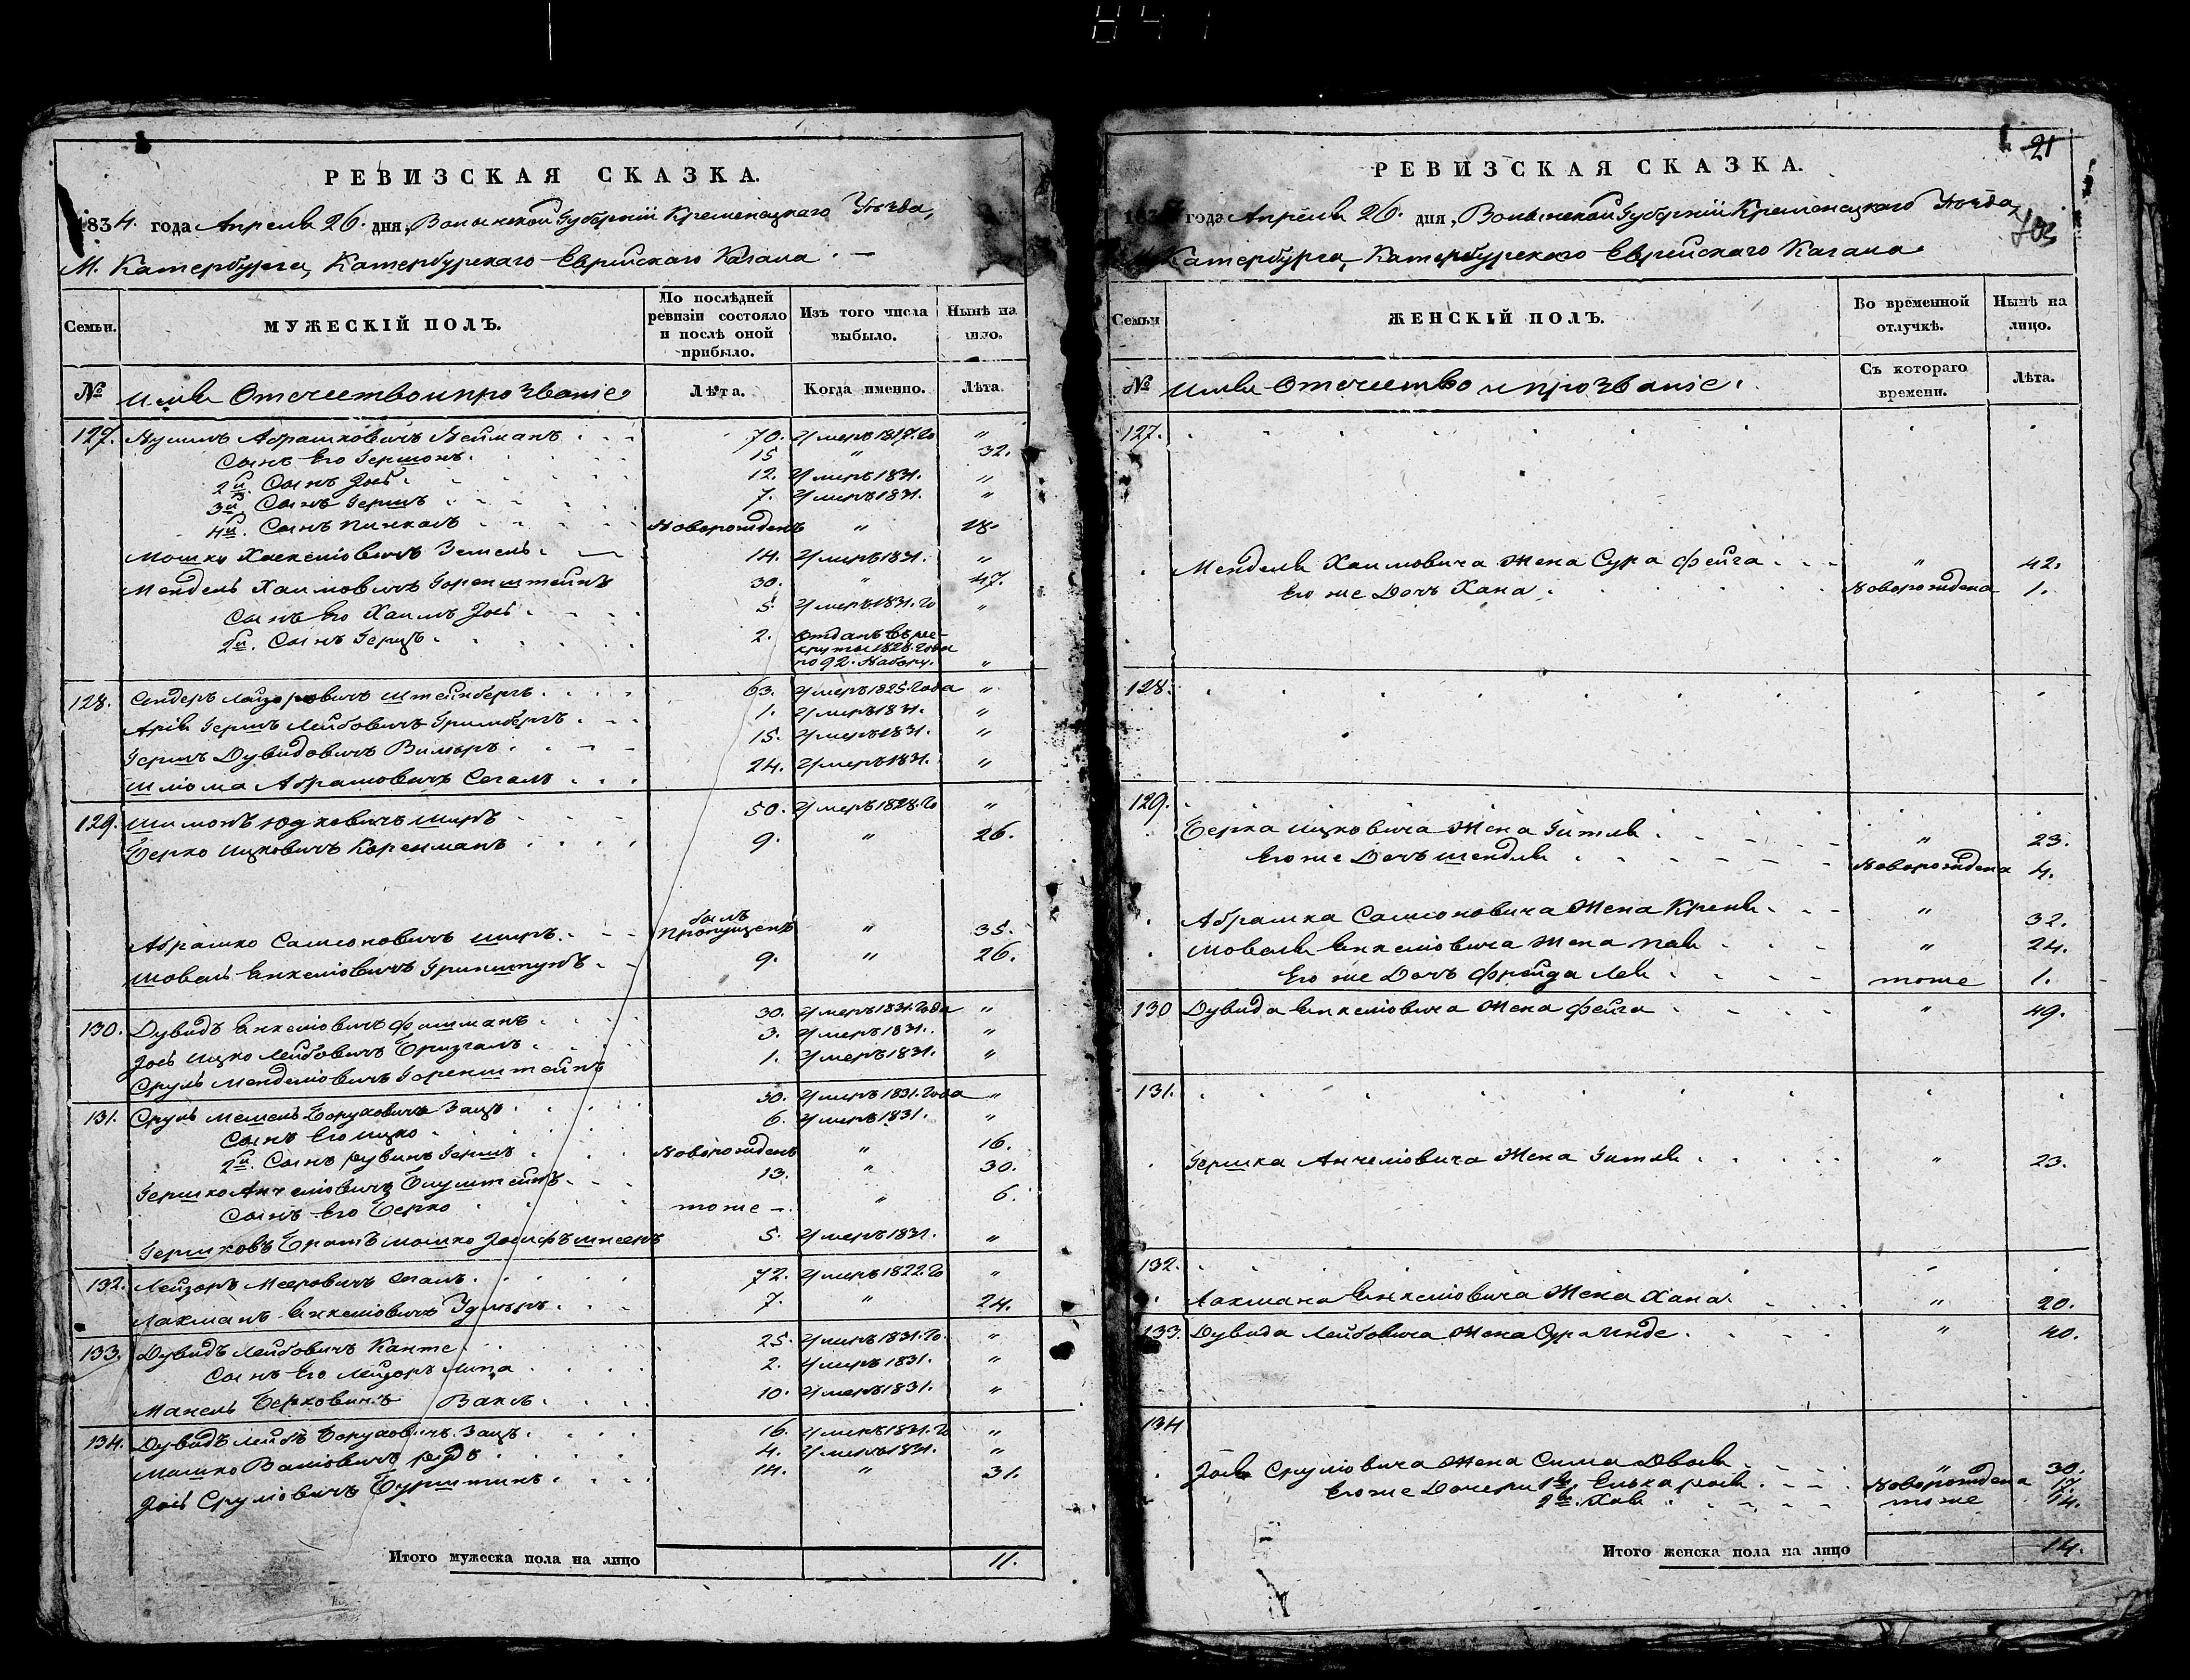 841
РЕВИЗСКАЯ СКАЗКА.
1834. года Апреля 26. дня, Волынской Губерніи Кременецкаго Уезда,
М. Катербурга, Катербурскаго Еврейскаго Кагала. —
Семьи.
МУЖЕСКІЙ ПОЛЪ.
По послѣдней ревизіи состояло и послѣ оной прибыло.
Изъ того числа выбыло.
Нынѣ на лицо.
№ Имя Отечество и прозваніе Лѣта. Когда именно. Лѣта.
127. Нухимъ Абрашковичъ Нейманъ 70. Умеръ 1817. го "
Сынъ Его Гершонъ. 15 " 32.
2й. Сынъ Іось 12. Умеръ 1831. "
3й. Сынъ Гершъ 7. Умеръ 1831. "
4й. Сынъ Пинкасъ Новорожденъ " 18.
Мошко Хаскеліовичъ 14. Умеръ 1831. "
Мендель Хаимовичъ Горенштейнъ 30. " 47.
Сынъ Его Хаимъ Іось 5. Умеръ 1831. го "
2й. Сынъ Герцъ 2. Отданъ в ре-
круты 1828. года
по 92. Набору. "
128. Сендеръ Лейзоровичъ Штейнберъ 63. Умеръ 1825. года "
Арія Гершъ Лейбовичъ Гримбергъ 1. Умеръ 1831. "
Гершъ Дувидовичъ 15. Умеръ 1831. "
Шліома Абрамовичъ Сегалъ 24. Умеръ 1831. "
129. Шимонъ Юдковичъ 50. Умеръ 1828. го "
Берко Ицковичъ Коренманъ 9. " 26.
Абрашко Самсоновичъ былъ пропущенъ " 35.
Шовель Янкеліовичъ 9. " 26.
130. Дувидъ Янкеліовичъ Фишманъ 30. Умеръ 1831. года "
Іось Ицко Лейбовичъ 3. Умеръ 1831. "
Сруль Менделіовичъ Горенштейнъ 1. Умеръ 1831. "
131. Сруль Мешель Боруховичъ Зацъ 30. Умеръ 1831. года "
Сынъ Его Ицко 6. Умеръ 1831. "
2й. Сынъ Рувинъ Гершъ Новорожденъ " 16.
Гершко Анчеліовичъ Блуштейнъ 13. " 30.
Сынъ Его Берко тоже — " 6.
Гершковъ Братъ Мошко Іосифъ 5. Умеръ 1831. "
132. Лейзоръ Мееровичъ Сегалъ 72. Умеръ 1822. го "
Лахманъ Янкеліовичъ 7. " 24.
133. Дувидъ Лейбовичъ 25. Умеръ 1831. го. "
Сынъ Его Лейзоръ Липа 2. Умеръ 1831. "
Манель Берковичъ Вакъ 10. Умеръ 1831. "
134. Дувидъ Лейбъ Боруховичъ Зацъ 16. Умеръ 1831. го "
Мошко Волiовичъ 4. Умеръ 1831. "
Іось Сруліовичъ Бурштинъ 14. " 31.
Итого мужеска пола на лицо 11.
21
РЕВИЗСКАЯ СКАЗКА.
года Апреля 26. дня, Волынской Губерніи Кременецкаго Уезда,
Катербурга, Катербурскаго Еврейскаго Кагала
Семьи
ЖЕНСКІЙ ПОЛЪ.
Во временной отлучкѣ.
Нынѣ на лицо.
№ Имя Отечество и прозваніе. Съ котораго времени. Лѣта.
127.
Менделя Хаимовича Жена Сура Фейга " 42.
Его же Дочь Хана Новорождена 1.
128.
129.
Берка Ицковича Жена Гитля " 23.
Его же Дочь Шендля Новорождена 4.
Абрашка Самсоновича Жена Крейня " 32.
Шовеля Янкеліовича Жена " 24.
Его же Дочь Фрейда Лея тоже 1.
130 Дувида Янкеліовича Жена Фейга " 49.
131.
Гершка Анчеліовича Жена Гитля " 23.
132.
Лахмана Янкеліовича Жена Хана " 20.
133. Дувида Лейбовича Жена Сура Инде " 40.
134
Іося Сруліовича Жена Сима Двося " 30.
Его же Дочери 1я. Новорождена 17.
2я. Хая тоже 14.
Итого женска пола на лицо 14.